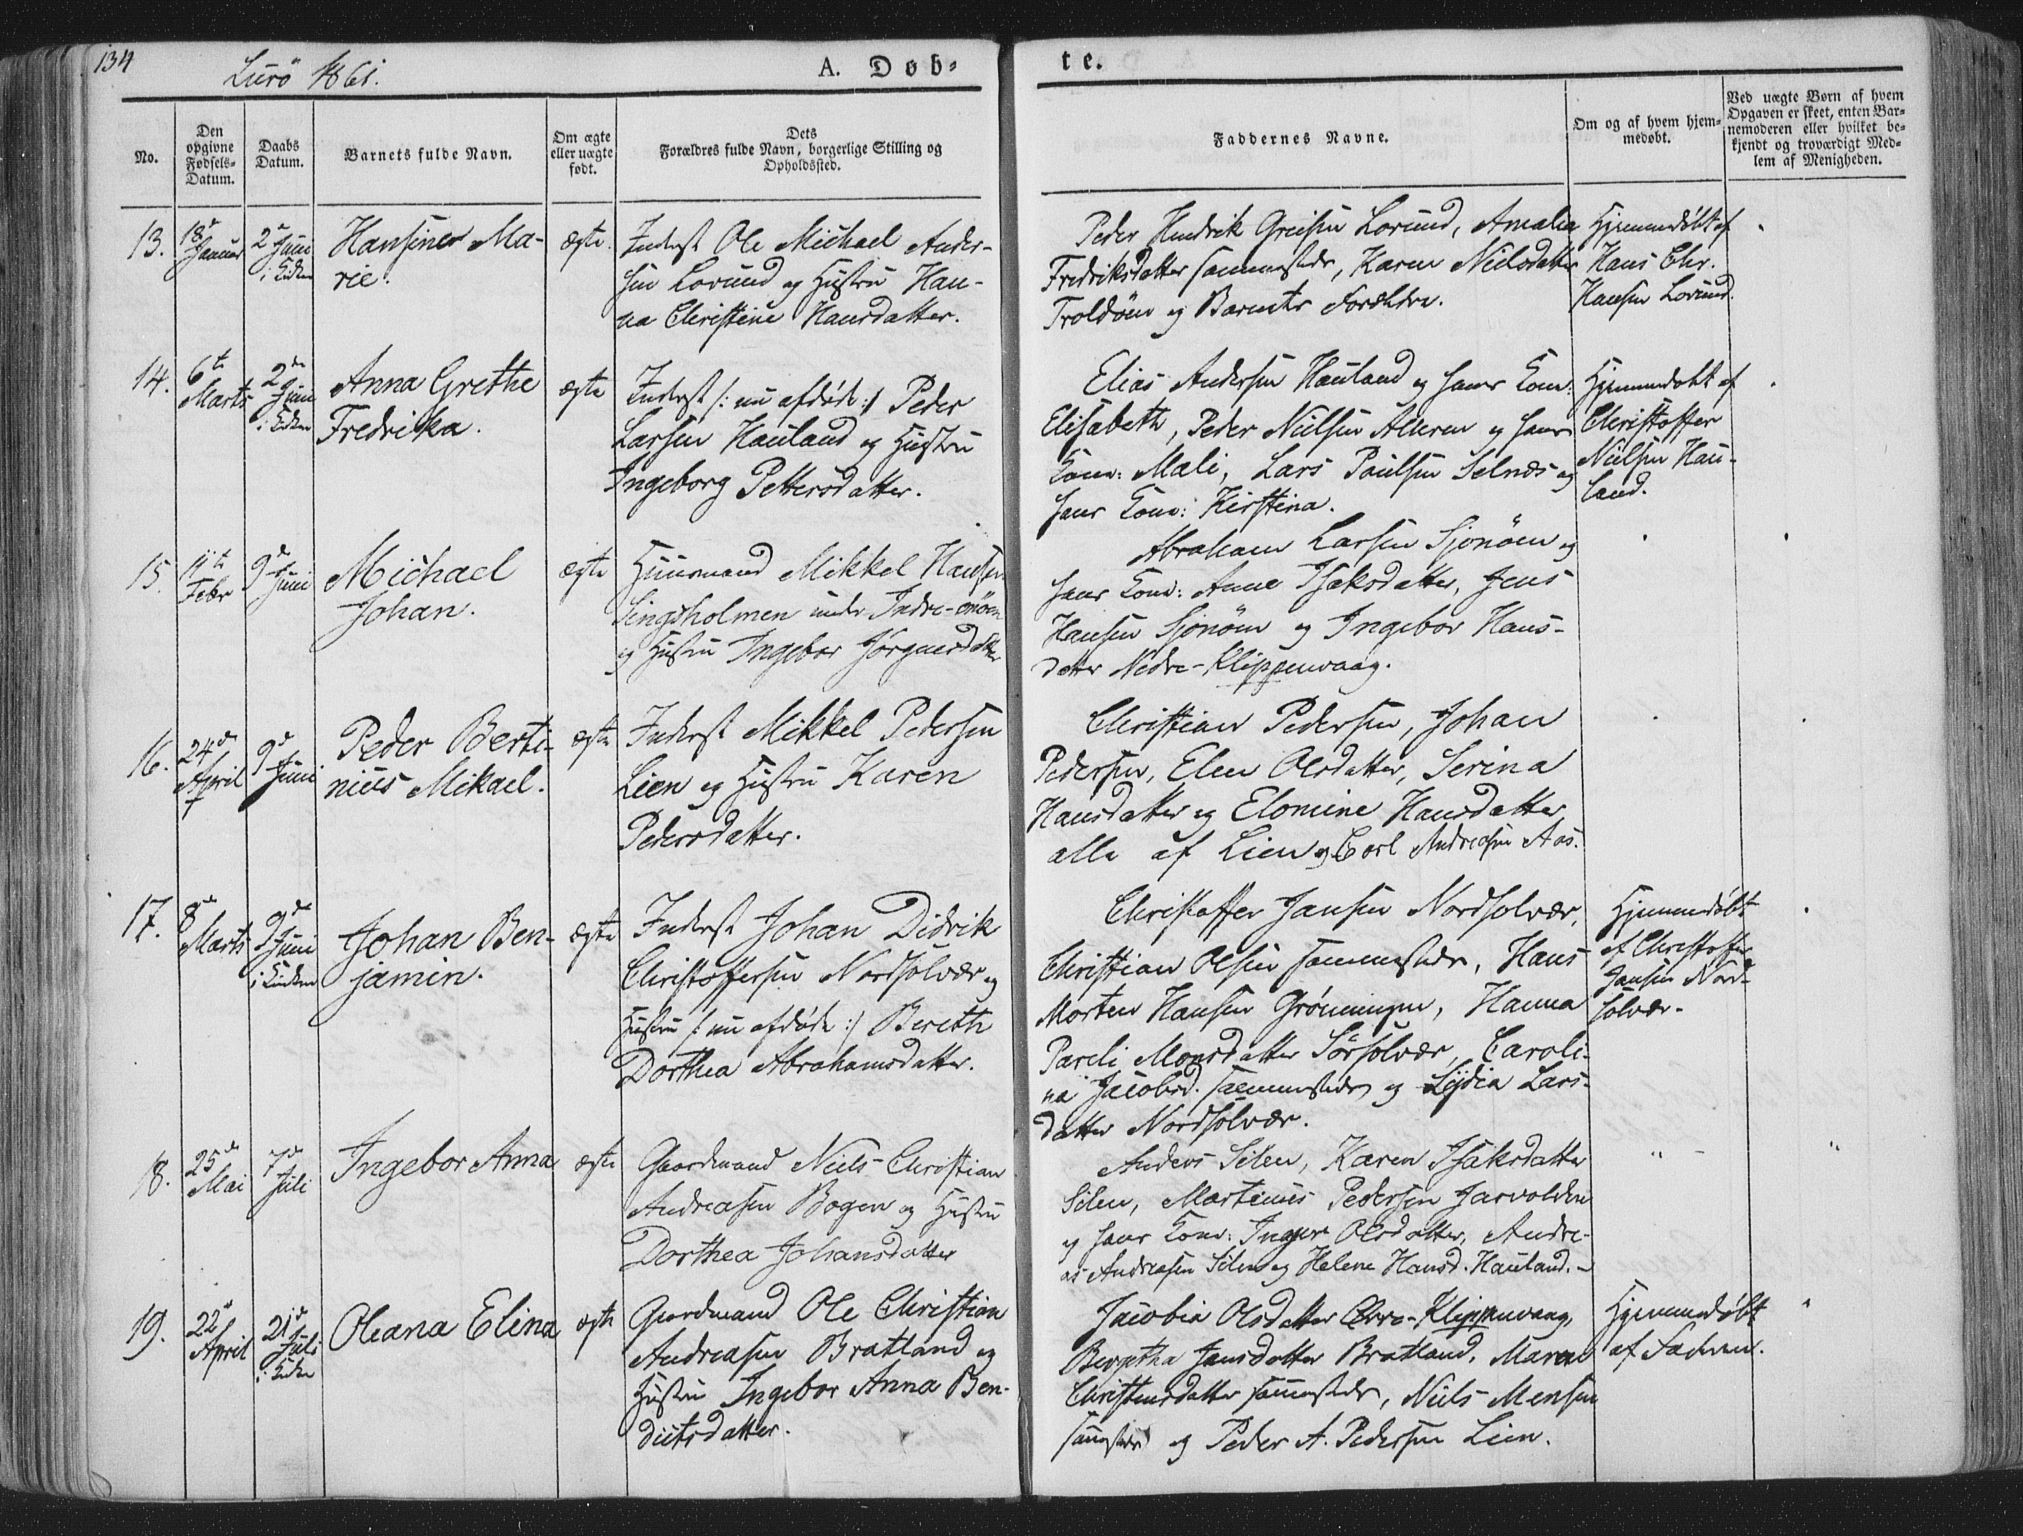 134
Lurö 1861.
A. Døb-
te.
No.
Den
opgivne
Fødsels-
Datum.
Daabs
Datum.
Barnets fulde Navn.
Om ægte
eller uægte
født.
Dets
Forældres fulde Navn, borgerlige Stilling og
Opholdssted.
Faddernes Navne.
Om og af hvem hjem-
medøbt.
Ved uægte Børn af hvem
Opgaven er skeet, enten Bar-
nemoderen eller hvilket be-
kjendt og troværdigt Med-
lem af Menigheden.
13.
18de
Januar
2den Juni
i Kirken
Hansine Ma-
rie.
ægte.
Inderst Ole Michael Ander-
sen Lovund og Hustru Han-
na Christine Hansdatter.
Peder Hendrik Greisen Lovund, Amalia
Fredriksdatter sammesteds, Karen Nielsdatter
Troldöen og Barnets Forældre.
Hjemmedöbt af
Hans Chr.
Hansen Lovund.
14.
6te
Marts
2den
Juni
i Kirken
Anna Grethe
Fredrika.
ægte
Inderst /: nu afdøde :/ Peder
Larsen Hauland og Hustru
Ingeborg Pettersdatter.
Elias Andersen Hauland og hans Kone:
Elisabeth, Peder Nielsen Alderen og hans
Kone: Mali, Lars Paulsen Selnæs og
hans Kone: Kirstina.
Hjemmedöbt af
Christoffer
Nielsen Hau-
land.
15.
11te
Febr
9de
Juni
Michael
Johan.
ægte
Huusmand Mikkel Hansen
Lingsholmen under Indre-
og Hustru Ingebor Jörgensdatter
Abraham Larsen Sjonöen og
hans Kone: Anne Isaksdatter, Jens
Hansen Sjonöen og Ingebor Hans-
datter Nedre-Klippenvaag.
16.
24de
April
9de
Juni
Peder Berti-
nius Mikael.
ægte
Inderst Mikkel Pedersen
Lien og Hustru Karen
Pedersdatter.
Christian Pedersen, Johan
Pedersen, Elen Olsdatter, Serina
Hansdatter og Elomine Hansdatter
alle af Lien og Carl Andreasen Aas.
17.
8de
Marts
9de
Juni
i Kirken
Johan Ben-
jamin.
ægte
Inderst Johan Didrik
Christoffersen Nordsolvær og
Hustru /: nu afdøde :/ Bereth
Dorthea Abrahamsdatter.
Christoffer Jansen Nordsolvær,
Christian Olsen sammesteds, Hans
Morten Hansen Grönningen, Hanna
Pareli Monsdatter Sörsolvær, Caroli-
na Jacobsd. sammesteds og Lydia Lars-
datter Nordsolvær.
Hjemmedöbt
af Christoffer
Jansen Nord-
solvær.
18.
25de
Mai
7de
Juli
Ingebor Anna
ægte
Gaardmand Niels Christian
Andreasen Bogen og Hustru
Dorthea Johansdatter
Anders Silen, Karen Isaksdatter
Silen, Martinus Pedersen Jarvolden
og hans Kone: Inger Olsdatter, Andre-
as Andreasen Silen og Helene Hansd. Hauland.
19.
22de
April
21de
Juli
i Kirken
Oleana Elina
ægte
Gaardmand Ole Christian
Andreasen Bratland og
Hustru Ingebor Anna Ben-
dictsdatter.
Jacobia Olsdatter Övre-Klippenvaag,
Bergitha Jansdatter Bratland, Maren
Christensdatter sammesteds, Niels Mensen
sammesteds og Peder A. Pedersen Lien.
Hjemmedöbt
af Faderen.